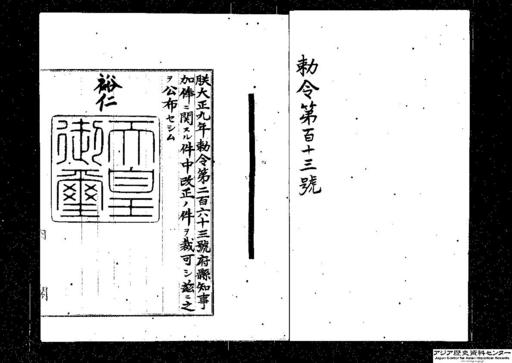 勅令第百十三號
朕大正九年勅令第二百六十三號府縣知事
加俸ニ關スル件中改正ノ件ヲ裁可シ茲ニ之
ヲ公布セシム
裕仁
天皇
御璽
内閣
アジア歴史資料センター
Japan Center for Asian Historical Records